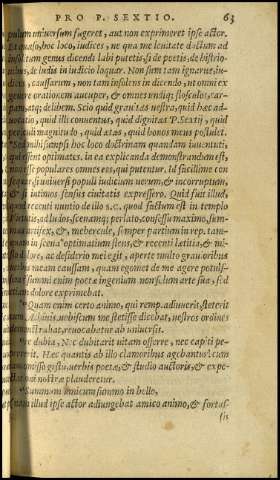 PRO P. SEXTIO. 63
populum universum fugeret, aut non exprimeret ipse actor.
Et quæso, hoc loco, iudices, ne qua me levitate ductum ad
insolitum genus dicendi labi putetis, si de poëtis, de histrio-
nibus, de ludis in iudicio loquar. Non sum tam ignarus, iu-
dices, caussarum, non tam insolens in dicendo, ut omni ex
genere orationem aucuper, & omnes undiq; flosculos, car-
pam, atq; delibem. Scio quid gravitas vestra, quid hæc ad-
vocatio, quid illi conventus, quid dignitas P. Sextij, quid
periculi magnitudo, quid ætas, quid honos meus postulet.
Sed mihi sumpsi hoc loco doctrinam quandam iuventuti,
qui essent optimates. in ea explicanda demonstrandum est,
non esse populares omnes eos, qui putentur. Id facillime con
sequar, si universi populi iudicium verum, & incorruptum,
& si intimos sensus civitatis expressero. Quid fuit illud,
quod recenti nuntio de illo S. C. quod factum est in templo
Virtutis, ad ludos, scenamq; perlato, consessu maximo, sum-
mus artifex, &, mehercule, semper partium in rep. tam-
quam in scena optimatium flens, & recenti lætitia, & mi-
sto dolore, ac desiderio mei egit, aperte multo gravioribus
verbis meam caussam, quam egomet de me agere potuis-
sem? summi enim poëtæ ingenium non solum arte sua, sed
etiam dolore exprimebat.
Quam enim certo animo, qui remp. adiuverit, steterit
cum Achivis. vobiscum me stetisse dicebat, vestros ordines
demonstrabat, revocabatur ab universis.
re dubia, Nec dubitarit vitam offerre, nec capiti pe-
percerit. Hæc quantis ab illo clamoribus agebantur? cum
omisso gestu, verbis poëtæ, & studio auctoris, & expe-
ctationi nostræ plauderetur.
Summum amicum summo in bello,
nam illud ipse actor adiungebat amico animo, & fortas-
sis